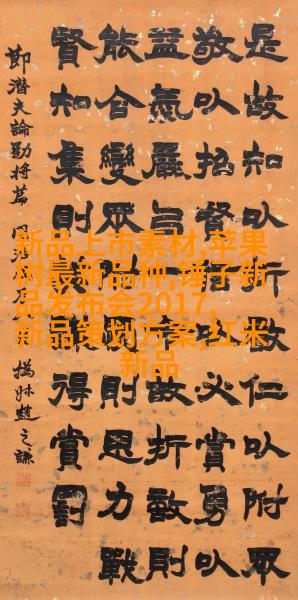 是故知㠯折敵仁㠯附眾
敬㠯招賢信㠯必賞勇㠯
益氣嚴㠯一令故折敵則
能合變眾附愛則思力戰
賢知集則得賞罰
節潛夫論勸將篇 同治
撝叔趙之謙
新品上市素材,苹果
树最新品种,锤子新
品发布会2017,
新品策划方案,红米
新品